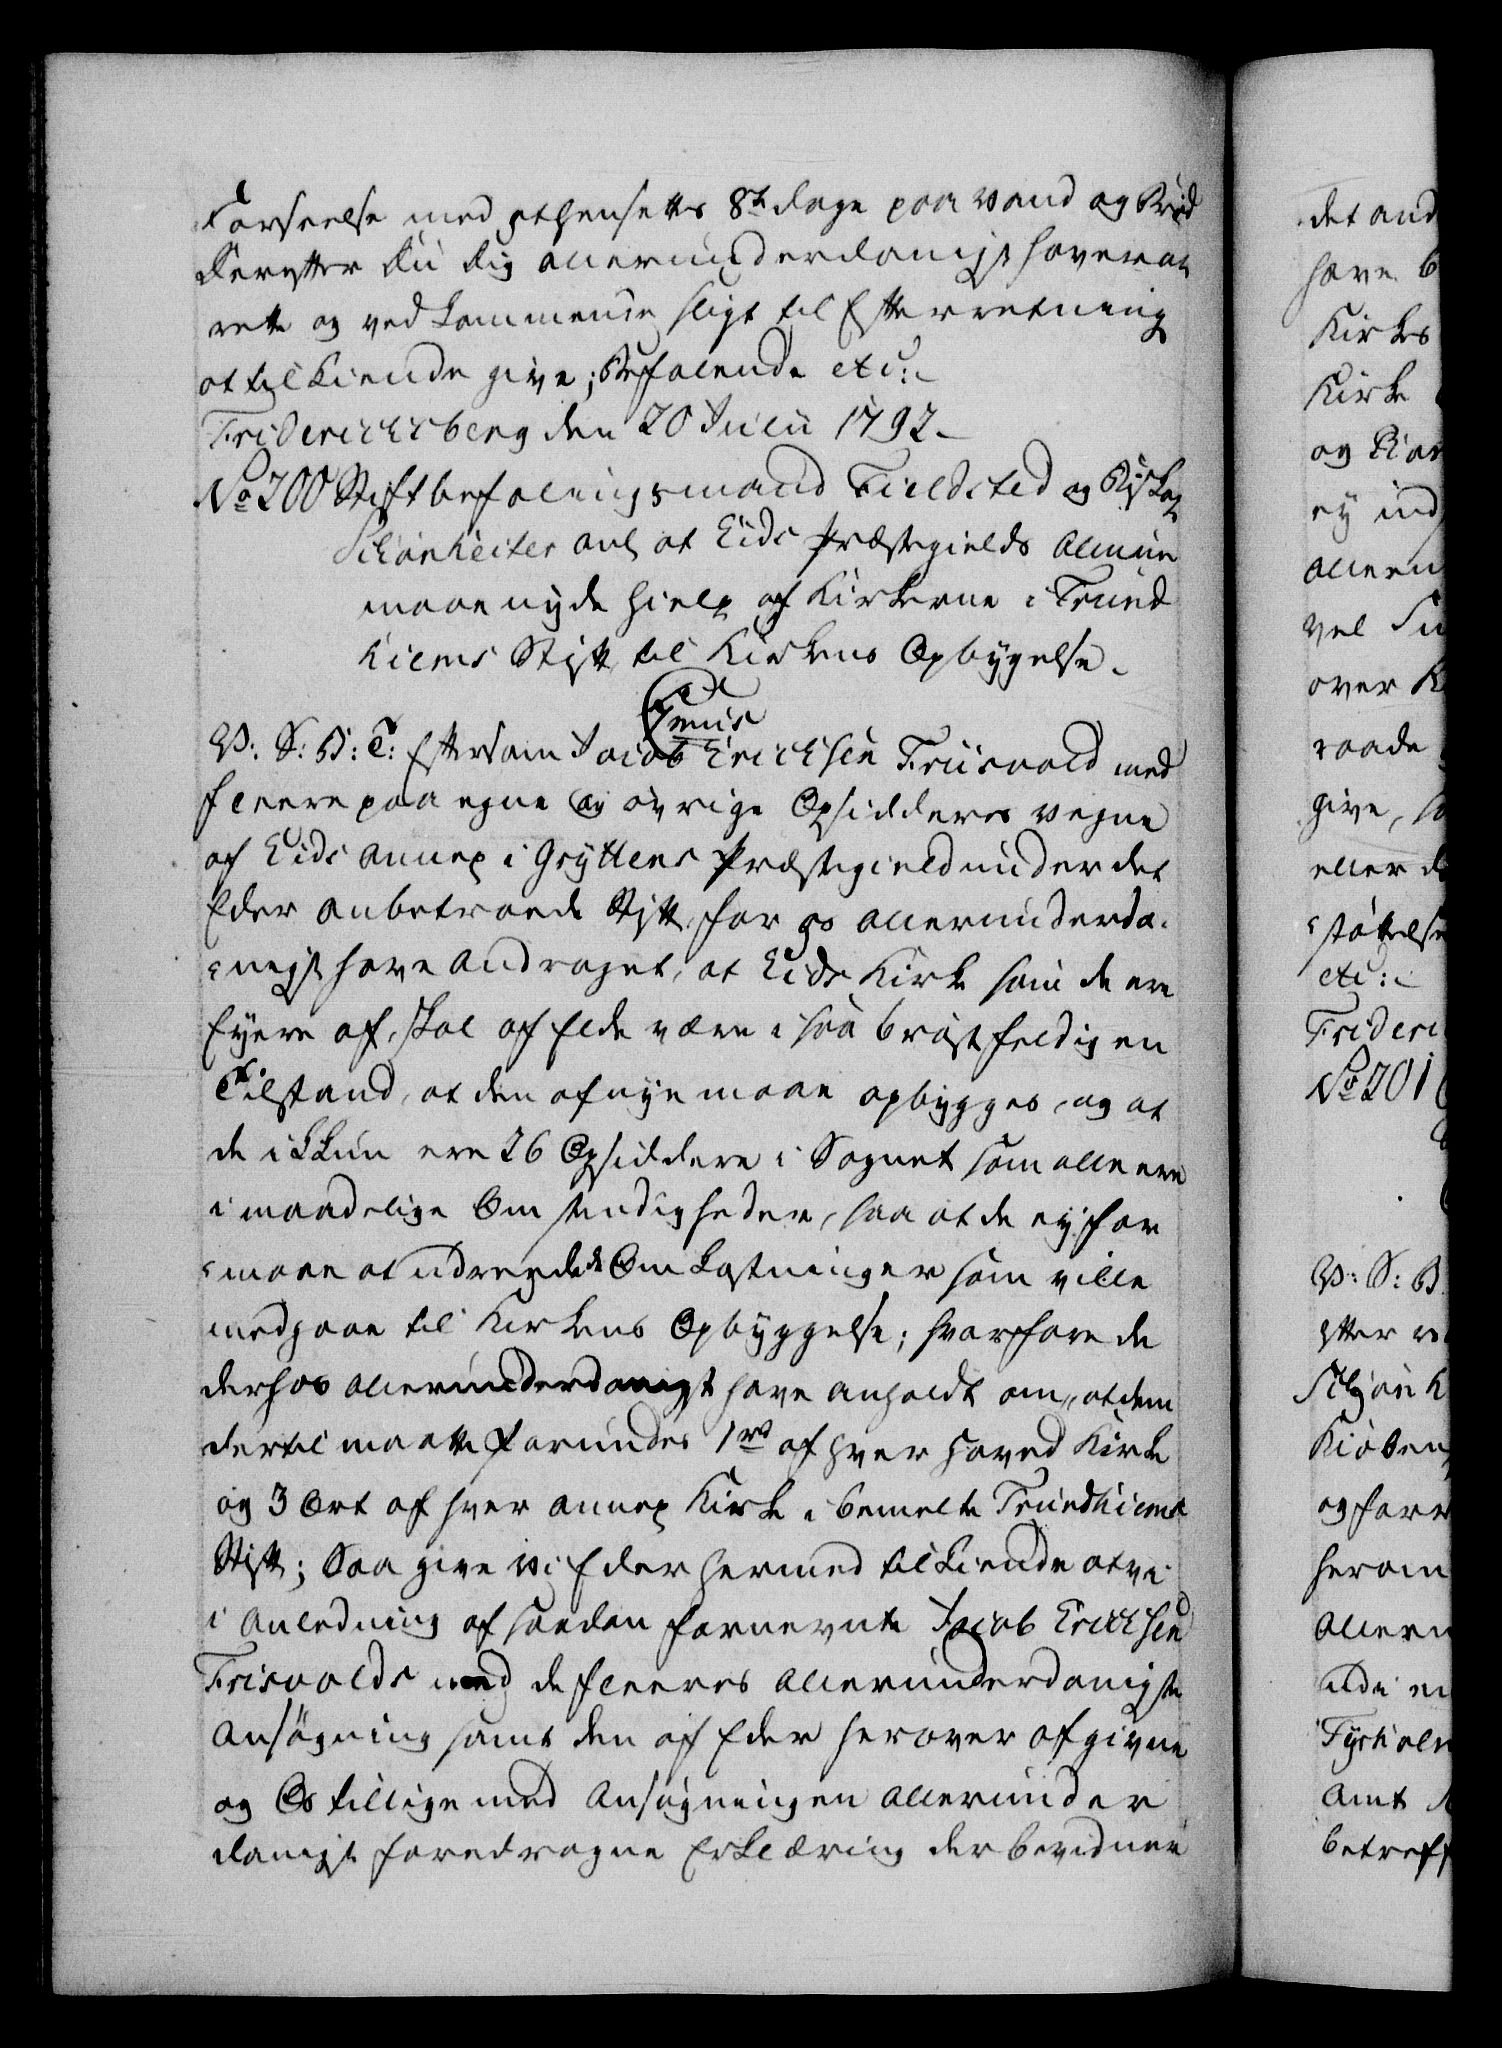 Forseelse med at hensettes 8te dage paa Vand og Brød
Derefter Du dig allerunderdanigst haver at
rette og vedkommende sligt til Efterretning
at tilkiende give; Befalende etc:
Friderichsberg den 20 Julii 1792
No 200 Stiftbefalingsmand Fieldsted og Biskop
Schønheiter anl at Eids Præstegields Almue
maae nyde hielp af Kirkerne i Trund
hiems Stift til Kirkens Opbygelse.
V: S: B: T: Eftersom Jacob Erichsen Friisvold med
fleere paa egne og øvrige Opsidderes vegne
af Eids Annex i Gryttens Præstegield under det
Eder anbetroede Stift, for os allerunderda-
nigst have andraget, at Eids Kirke som de ere
Eyere af, skal af Elde være i saa brøstfeldigen
Tilstand, at den af nye maae opbygges, og at
de ikkun ere 26 Opsiddere i Sognet som alle ere
i maadelige Omstendigheder, saa at de ey for
maae at udreede de Omkostninger som ville
medgaae til Kirkens Opbyggelse; hvorfore de
derhos allerunderdanigst have anholdt om, at dem
dertil maatte forundes 1 rd af hver hoved Kirke
og 3 Ort af hver annex Kirke i bemelte Trundhiems
Stift; Saa give vi Eder hermed tilkiende at vi
i Anledning af saadan fornevnte Jacob Erichsen
Frisvolds med de fleeres allerunderdanigste
Ansøgning samt den af Eder herover afgivne
og Os tillige med Ansøgningen allerunder
danigst foredragne Erklæring der bevidner
det and
have b
Kirkes
Kirke
og
ey ind
alleru
vel
over
raade
give, sa
eller d
støtelse
etc:
Frideri
No 201
V: S: B
efter
Schønh
Kiøben
og forr
herom
allern
Tyrholm
Amt
betreff